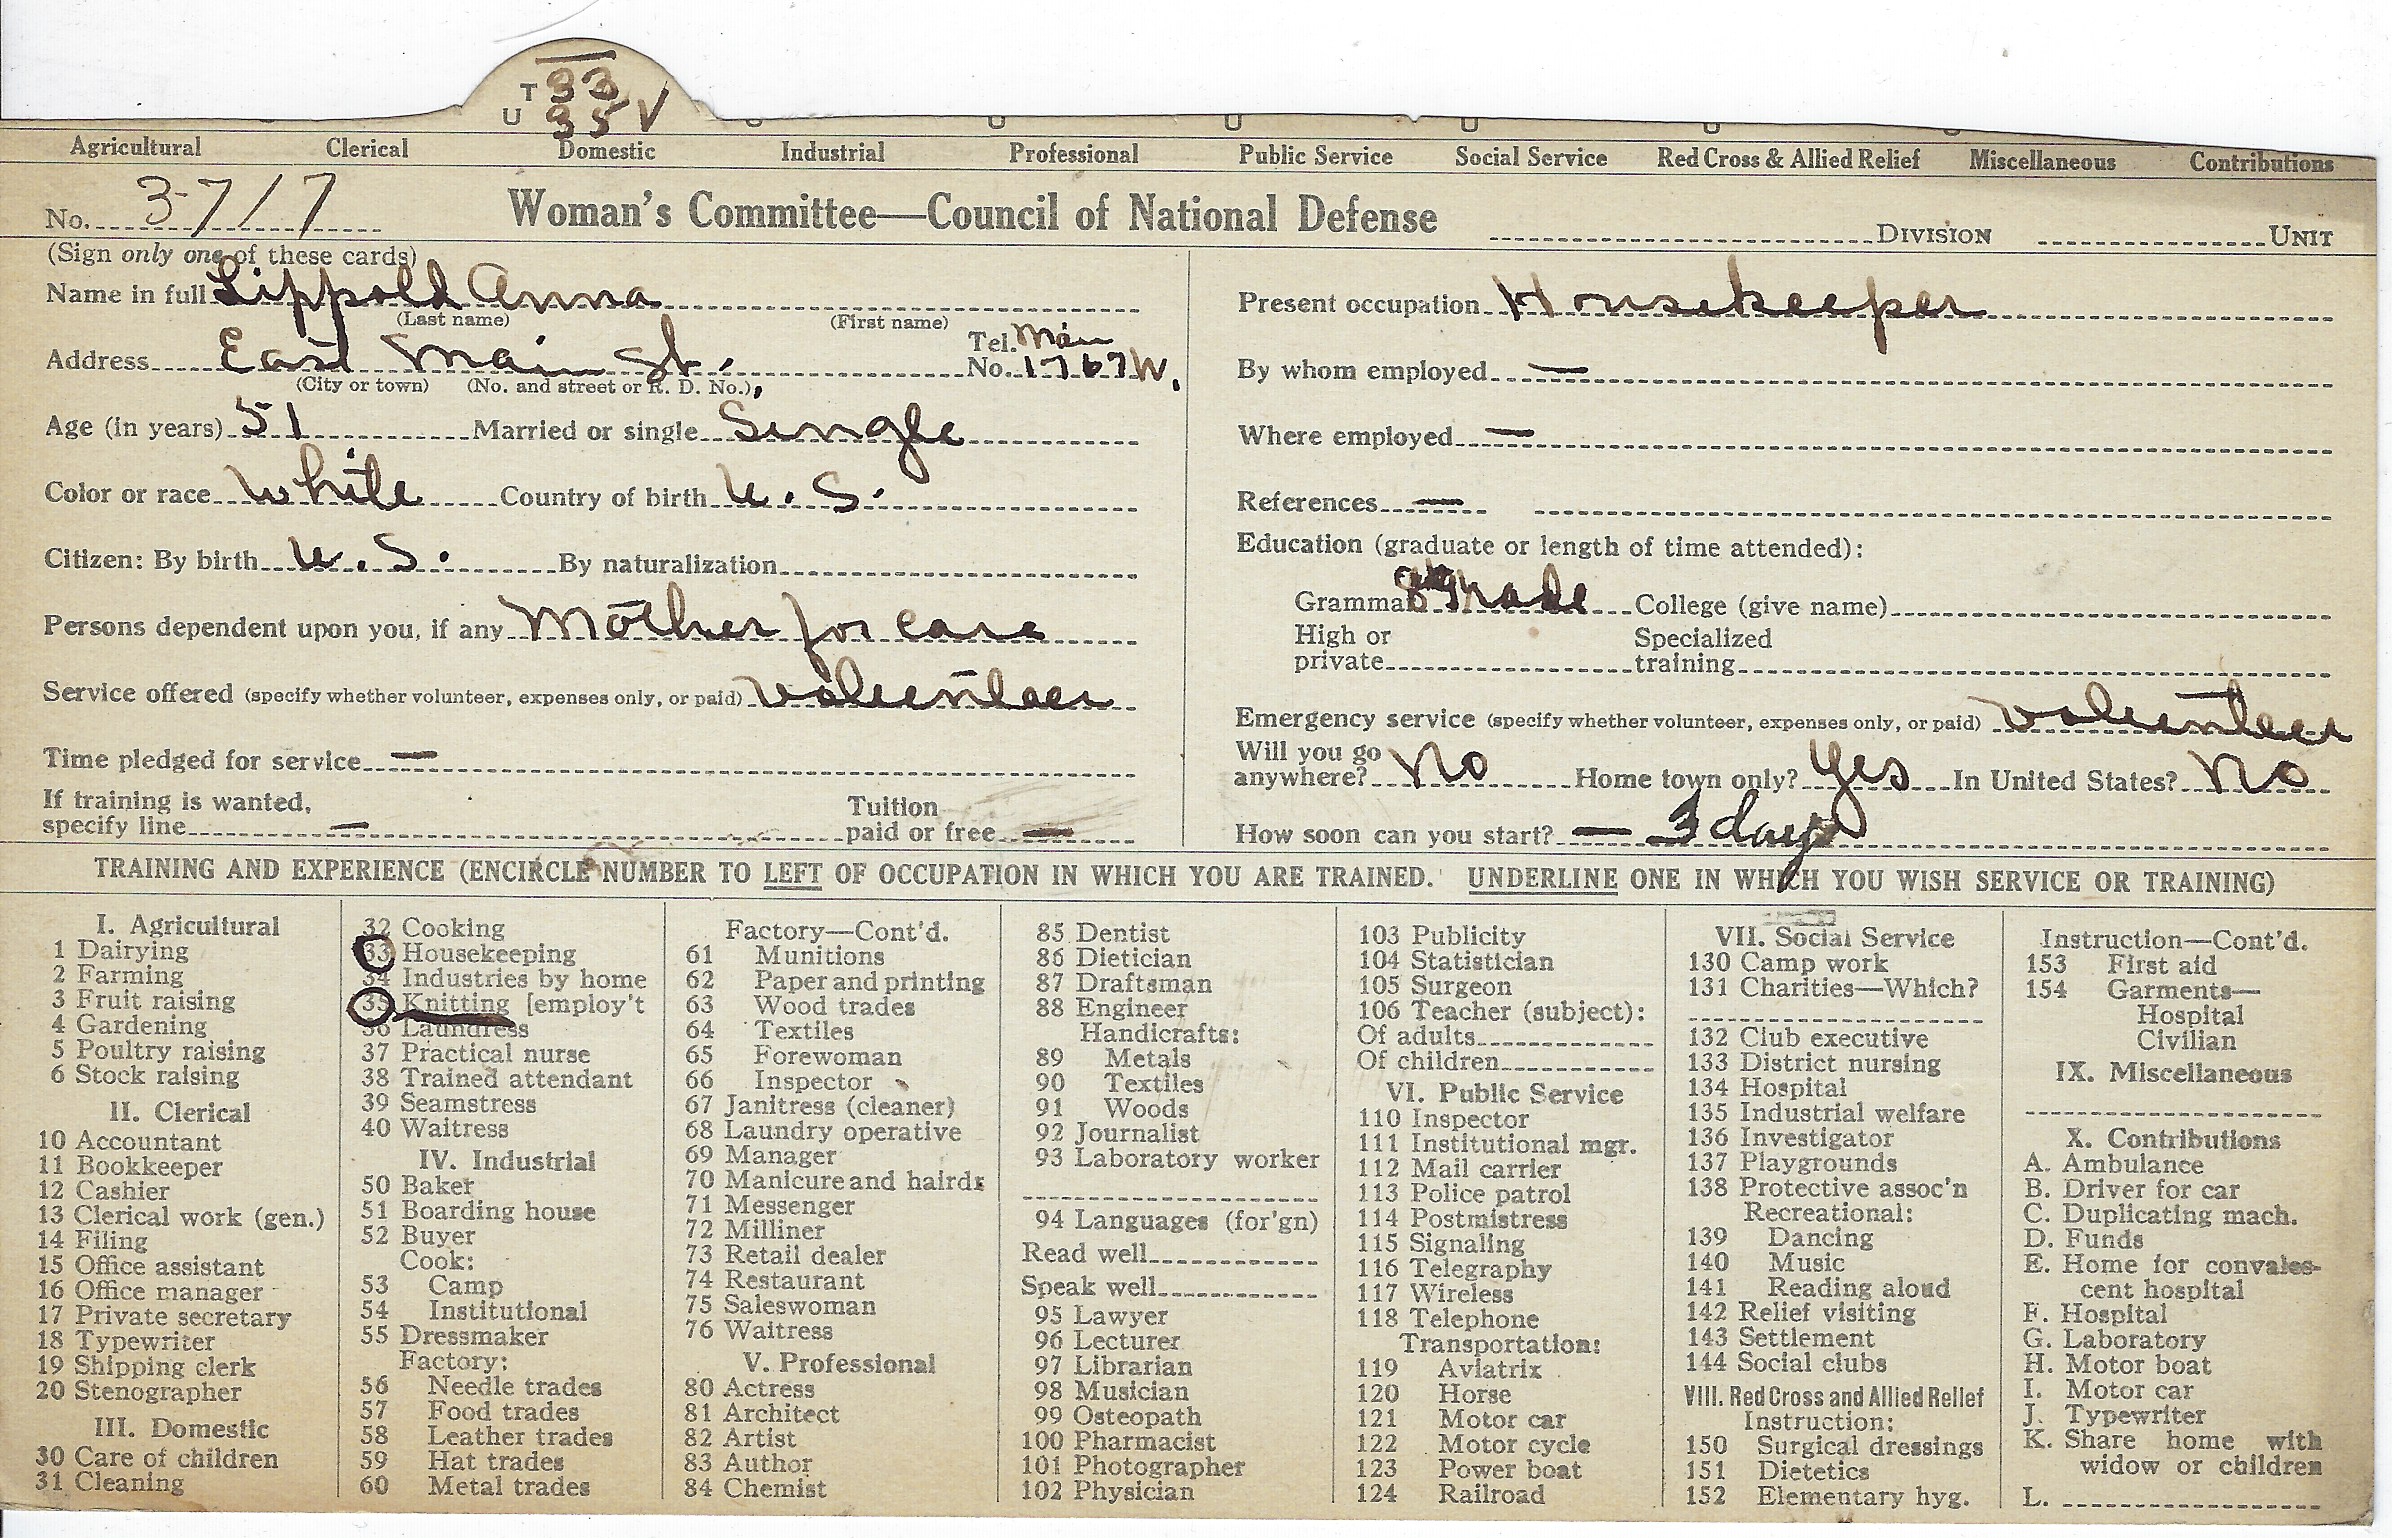 T 33
U 35 V
Agricultural Clerical Domestic Industrial Professional Public Service Social Service Red Cross & Allied Relief Miscellaneous Contributions
No. 3717 Woman's Committee—Council of National Defense DIVISION UNIT
(Sign only one of these cards)
Name in full Lippold Anna
(Last name) (First name)
Address East Main St. Tel. No. Main 1767 W.
(City or town) (No. and street or R. D. No.)
Age (in years) 51 Married or single Single
Color or race White Country of birth U. S.
Citizen: By birth U. S. By naturalization
Persons dependent upon you, if any Mother for care
Service offered (specify whether volunteer, expenses only, or paid) volunteer
Time pledged for service —
If training is wanted, specify line — Tuition paid or free —
Present occupation Housekeeper
By whom employed —
Where employed —
References —
Education (graduate or length of time attended):
Grammar 8th Grade College (give name)
High or private Specialized training
Emergency service (specify whether volunteer, expenses only, or paid) volunteer
Will you go anywhere? No Home town only? Yes In United States? No
How soon can you start? — 3 days
TRAINING AND EXPERIENCE (ENCIRCLE NUMBER TO LEFT OF OCCUPATION IN WHICH YOU ARE TRAINED. UNDERLINE ONE IN WHICH YOU WISH SERVICE OR TRAINING)
I. Agricultural
1 Dairying
2 Farming
3 Fruit raising
4 Gardening
5 Poultry raising
6 Stock raising
II. Clerical
10 Accountant
11 Bookkeeper
12 Cashier
13 Clerical work (gen.)
14 Filing
15 Office assistant
16 Office manager
17 Private secretary
18 Typewriter
19 Shipping clerk
20 Stenographer
III. Domestic
30 Care of children
31 Cleaning
32 Cooking
33 Housekeeping
34 Industries by home
35 Knitting [employ't
36 Laundress
37 Practical nurse
38 Trained attendant
39 Seamstress
40 Waitress
IV. Industrial
50 Baker
51 Boarding house
52 Buyer
Cook:
53 Camp
54 Institutional
55 Dressmaker
Factory:
56 Needle trades
57 Food trades
58 Leather trades
59 Hat trades
60 Metal trades
Factory—Cont'd.
61 Munitions
62 Paper and printing
63 Wood trades
64 Textiles
65 Forewoman
66 Inspector
67 Janitress (cleaner)
68 Laundry operative
69 Manager
70 Manicure and hairdr
71 Messenger
72 Milliner
73 Retail dealer
74 Restaurant
75 Saleswoman
76 Waitress
V. Professional
80 Actress
81 Architect
82 Artist
83 Author
84 Chemist
85 Dentist
86 Dietician
87 Draftsman
88 Engineer
Handicrafts:
89 Metals
90 Textiles
91 Woods
92 Journalist
93 Laboratory worker
94 Languages (for'gn)
Read well
Speak well
95 Lawyer
96 Lecturer
97 Librarian
98 Musician
99 Osteopath
100 Pharmacist
101 Photographer
102 Physician
103 Publicity
104 Statistician
105 Surgeon
106 Teacher (subject):
Of adults
Of children
VI. Public Service
110 Inspector
111 Institutional mgr.
112 Mail carrier
113 Police patrol
114 Postmistress
115 Signaling
116 Telegraphy
117 Wireless
118 Telephone
Transportation:
119 Aviatrix
120 Horse
121 Motor car
122 Motor cycle
123 Power boat
124 Railroad
VII. Social Service
130 Camp work
131 Charities—Which?
132 Club executive
133 District nursing
134 Hospital
135 Industrial welfare
136 Investigator
137 Playgrounds
138 Protective assoc'n
Recreational:
139 Dancing
140 Music
141 Reading aloud
142 Relief visiting
143 Settlement
144 Social clubs
VIII. Red Cross and Allied Relief
Instruction:
150 Surgical dressings
151 Dietetics
152 Elementary hyg.
Instruction—Cont'd.
153 First aid
154 Garments—
Hospital
Civilian
IX. Miscellaneous
X. Contributions
A. Ambulance
B. Driver for car
C. Duplicating mach.
D. Funds
E. Home for convales-
cent hospital
F. Hospital
G. Laboratory
H. Motor boat
I. Motor car
J. Typewriter
K. Share home with
widow or children
L.